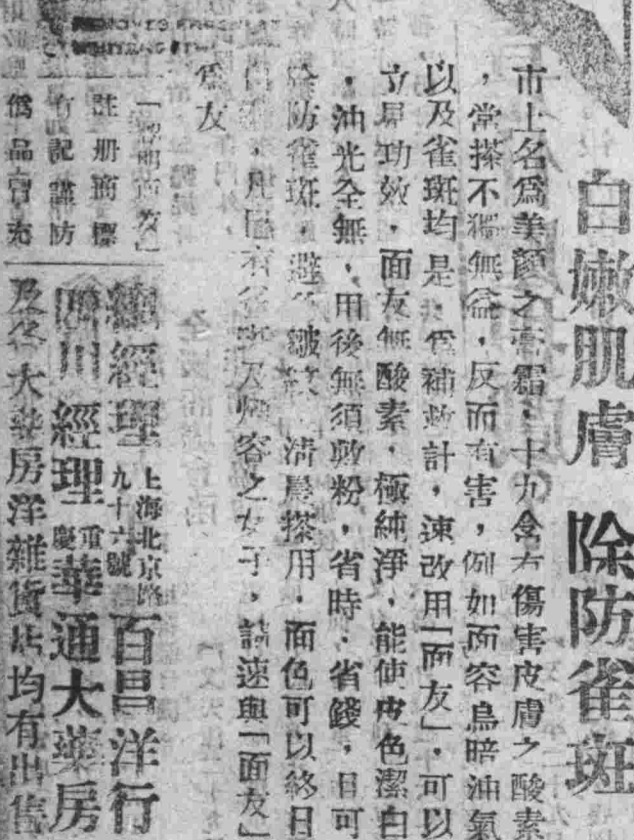 白嫩肌膚 除防雀斑
市上名爲美顏之膏霜,十九含有傷害皮膚之酸素
,常搽不獨無益,反而有害,例如面容烏暗油氣
以及雀斑均是,爲補救計,速改用「面友」,可以
立見功效,面友無酸素,極純淨,能使皮色潔白
,油光全無,用後無須敷粉,省時,省錢,日可
除防雀斑,避 皺紋 清晨搽用,面色可以終日
,凡 容之女子,請速與「面友」
爲友
「 面友」
註册商標
有記謹防
僞品冒充
總經理 上海北京路九十六號 百昌洋行
四川經理 重慶 華通大藥房
及各大藥房洋雜貨店均有出售